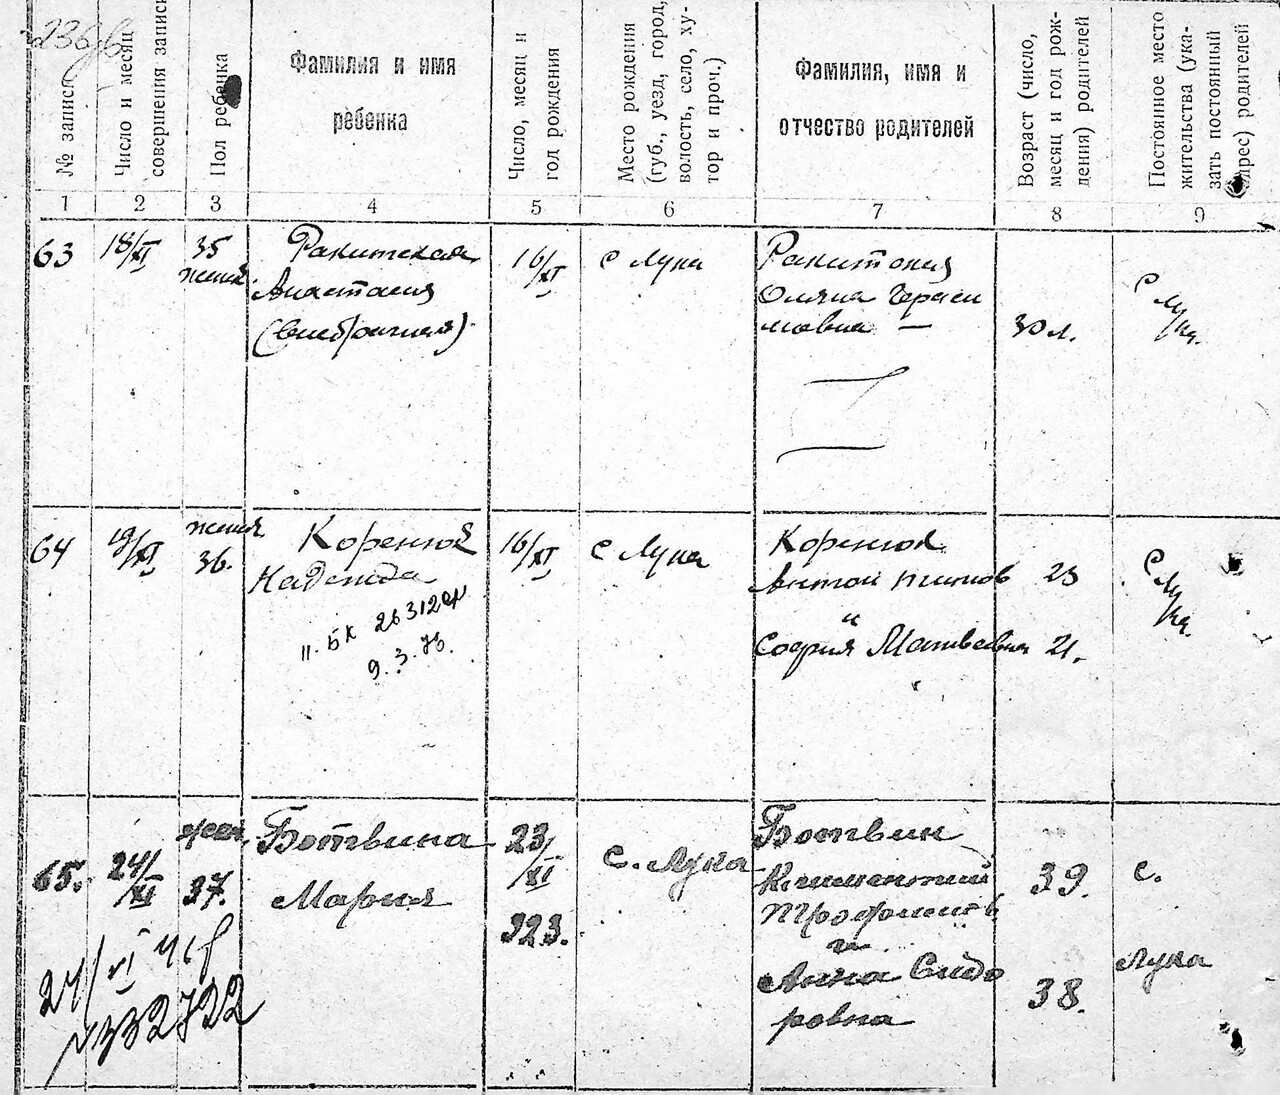 № записи
Число и месяц
совершения записи
Пол ребенка
Фамилия и имя
ребенка
Число, месяц и
год рождения
Место рождения
(губ., уезд, город,
волость, село, ху-
тор и проч.)
Фамилия, имя и
отчество родителей
Возраст (число,
месяц и год рож-
дения) родителей
Постоянное место
жительства (ука-
зать постоянный
адрес) родителей
1 2 3 4 5 6 7 8 9
63
18/XI
35
женск
Ракитская
Анастасия
(внебрачная)
16/XI
с Лука
Ракитская
Гераси
мовна —
30 л.
с Лука.
64
19/XI
женск
36.
Коренюк
Надежда
II. БК 263120
9.3.76.
16/XI
с Лука
Коренюк
Антон
и
София Матвеевна
23
21.
с Лука.
65.
24/XI
жен.
37.
Ботвина
Мария
23/XI
923.
с. Лука
Ботвин
Климентий
Трофимов.
и
Анна Сидо
ровна
39.
38.
с.
Лука
24/VI 41
332722